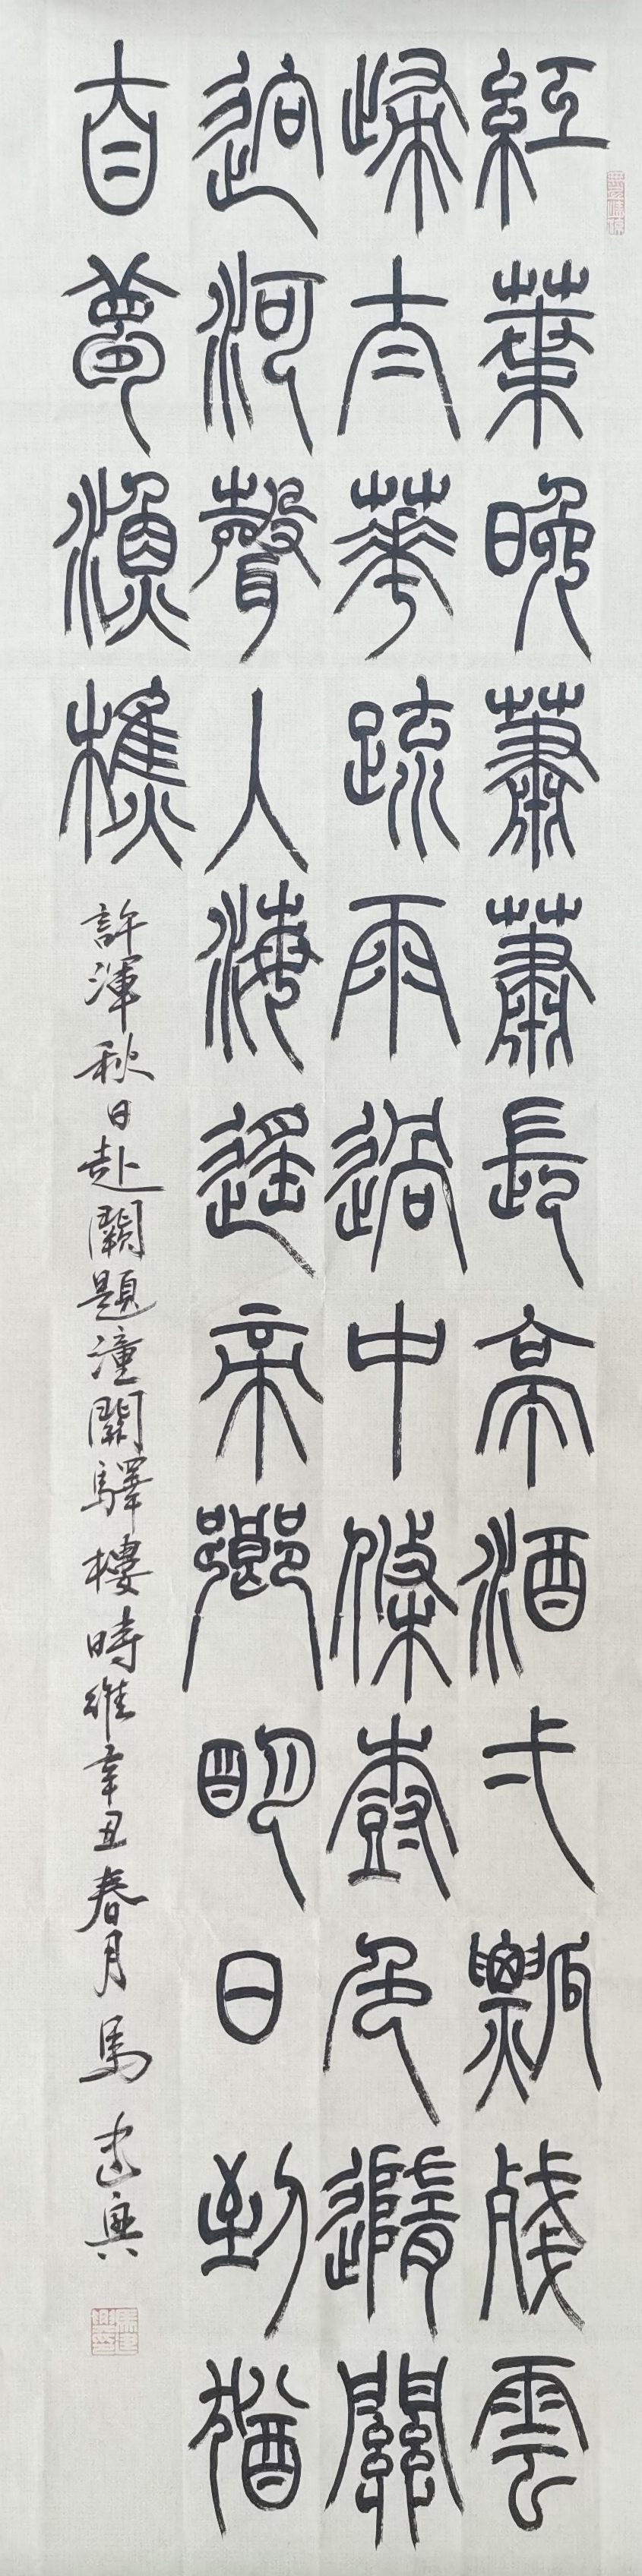 紅葉晚蕭蕭長亭酒弌瓢殘雲
歸太華疏雨過中條樹色隨關
迥河聲入海遙帝鄉明日到猶
自夢漁樵
許渾秋日赴闕題潼關驛樓時維辛丑春月馬建興